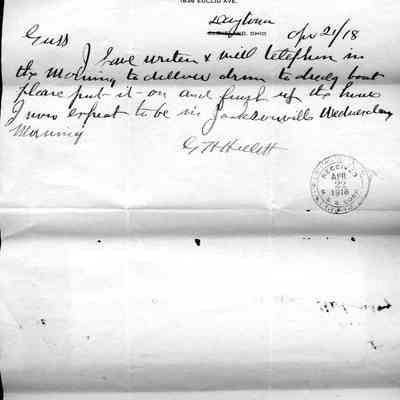 1836 EUCLID AVE.
Daytona
CLEVELAND, OHIO Apr 21/18
Guss
I have writen & will telephon in
the Morning to deliver drum to dredg boat
please put it on and finish up the hous
I now expect to be in Jacksonville Wednesday
Morning
G H Hulett
RECEIVED
APR
22
1918